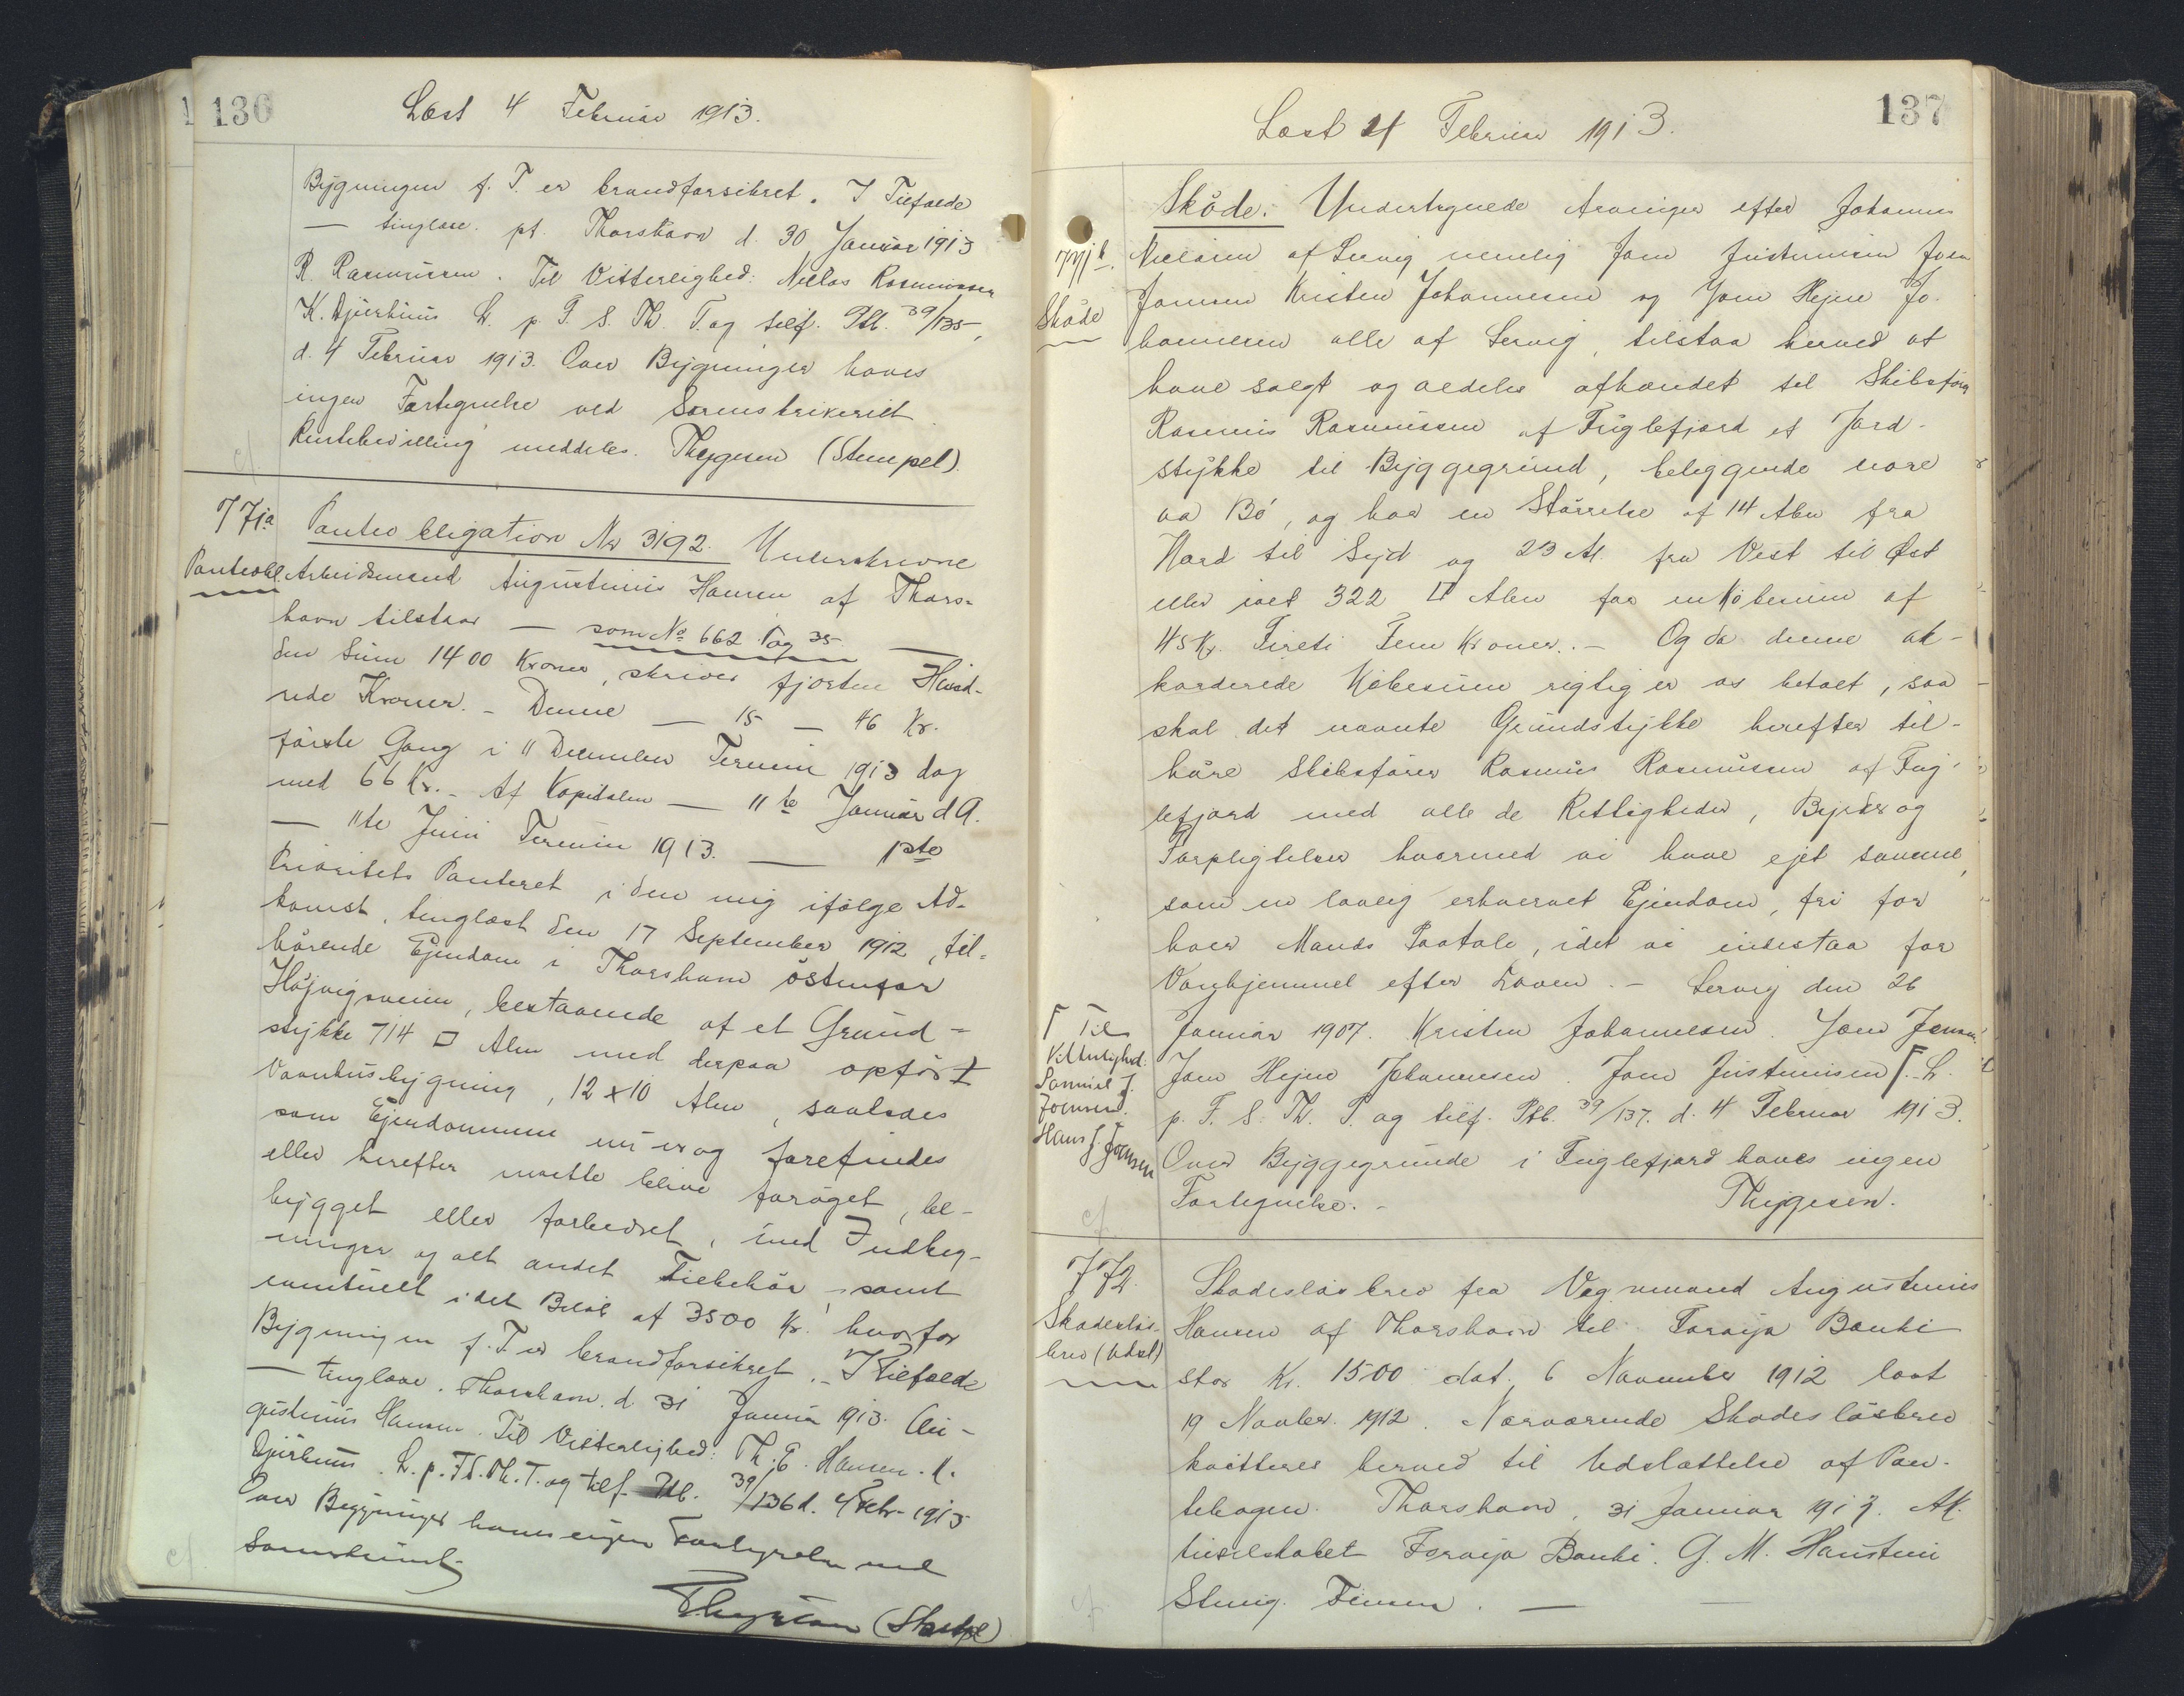 136
Læst 4 Februar 1913.
Bygningen f. T. er brandforsikret. I Tilfælde
— tinglæse. pt. Thorshavn d. 30 Januar 1913
R. Rasmussen. Til Vitterlighed: Niclas Rasmussen
K. Djurhuus L. p. F. S. Th. T. og tilf. Ptb. 39/135,
d. 4 Februar 1913. Over Bygninger haves
ingen Fortegnelse ved Sorenskriveriet
meddeles. Thygesen (Stempel).
cf.
771a
Panteobl.
Panteobligation Nr 3192. Underskrevne
Arbeidsmand Augustinus Hansen af Thors-
havn tilstaar — som No 662 Pag 35 —
den Sum 1400 Kroner, skriver fjorten Hund-
rede Kroner. - Denne — 15 — 46 Kr.
første Gang i 11 December Termin 1913 dog
med 66 Kr. - Af Kapitalen — 11te Januar d A.
— 11te Juni Termin 1913. — 1ste
Prioritets Panteret i den mig ifølge Ad-
komst, tinglæst den 17 September 1912, til-
hørende Ejendom i Thorshavn østenfor
Højvigsveien, bestaaende af et Grund-
stykke 714 □ Alen med derpaa opført
Vaanhusbygning, 12 x 10 Alen, saaledes
som Ejendommene nu er og forefindes
eller herefter maatte blive forøget, be-
bygget eller forbedret, med Indheg-
ninger og alt andet Tilbehør, samt
eventuelt i det Beløb af 3500 Kr. hvorfor
Bygningen f. T. er brandforsikret. - I Tilfælde
— tinglæse. Thorshavn. d 31 Januar 1913. Au-
gustinus Hansen. Til Vitterlighed: Th. E. Hansen. K.
Djurhuus. L. p. F. S. Th. T. og tilf. Ptb. 39/136 d. 4 Febr. 1913
Over Bygninger haves ingen Fortegnelse ved
cf.
Thygesen (Stempel)
137
Læst 4 Februar 1913.
771b.
Skøde
Skøde. Undertegnede Arvinger efter Johannes
Niclasen af Lervig nemlig Jøen Justinusen Joen
Joensen Kristen Johannesen og Joen Hejne Jo-
hannesen alle af Lervig, tilstaa herved at
have solgt og aldeles afhændet til Skibsfører
Rasmus Rasmussen af Fuglefjord et Jord-
stykke til Byggegrund, beliggende nore
aa Bø, og har en Størrelse af 14 Alen fra
Nord til Syd og 23 Al. fra Vest til Øst
eller ialt 322 □ Alen for en Købesum af
45 Kr. Fireti Fem Kroner. - Og da denne ak-
korderede Købesum rigtig er os betalt, saa
skal det nævnte Grundstykke herefter til-
høre Skibsfører Rasmus Rasmussen af Fug-
lefjord med alle de Rettigheder, Byrder og
Forpligtelser hvormed vi have ejet samme,
som en lovlig erhvervet Ejendom, fri for
hver Mands Paatale, idet vi indestaa for
Vanhjemmel efter Loven. - Lervig den 26
Januar 1907. Kristen Johannesen. Joen Joensen.
Joen Hejne Johannesen. Joen Justinusen Γ. L.
p. F. S. Th. T. og tilf. Ptb. 39/137. d. 4 Februar 1913.
Over Byggegrunde i Fuglefjord haves ingen
Fortegnelse. - Thygesen.
Γ Til
Vitterlighed:
Samuel J.
Joensen.
Hans J. Joensen
cf.
772.
Skadesløs-
brev (Udsl.)
Skadesløsbrev fra Vognmand Augustinus
Hansen af Thorshavn til Føroya Banki
stor Kr. 1500 dat. 6 November 1912 læst
19 Novber. 1912. Nærværende Skadesløsbrev
kvitteres herved til Udslettelse af Pan-
tebogen. Thorshavn, 31 Januar 1913. Ak-
tieselskabet Føroya Banki. G. M. Hansteen
cf.